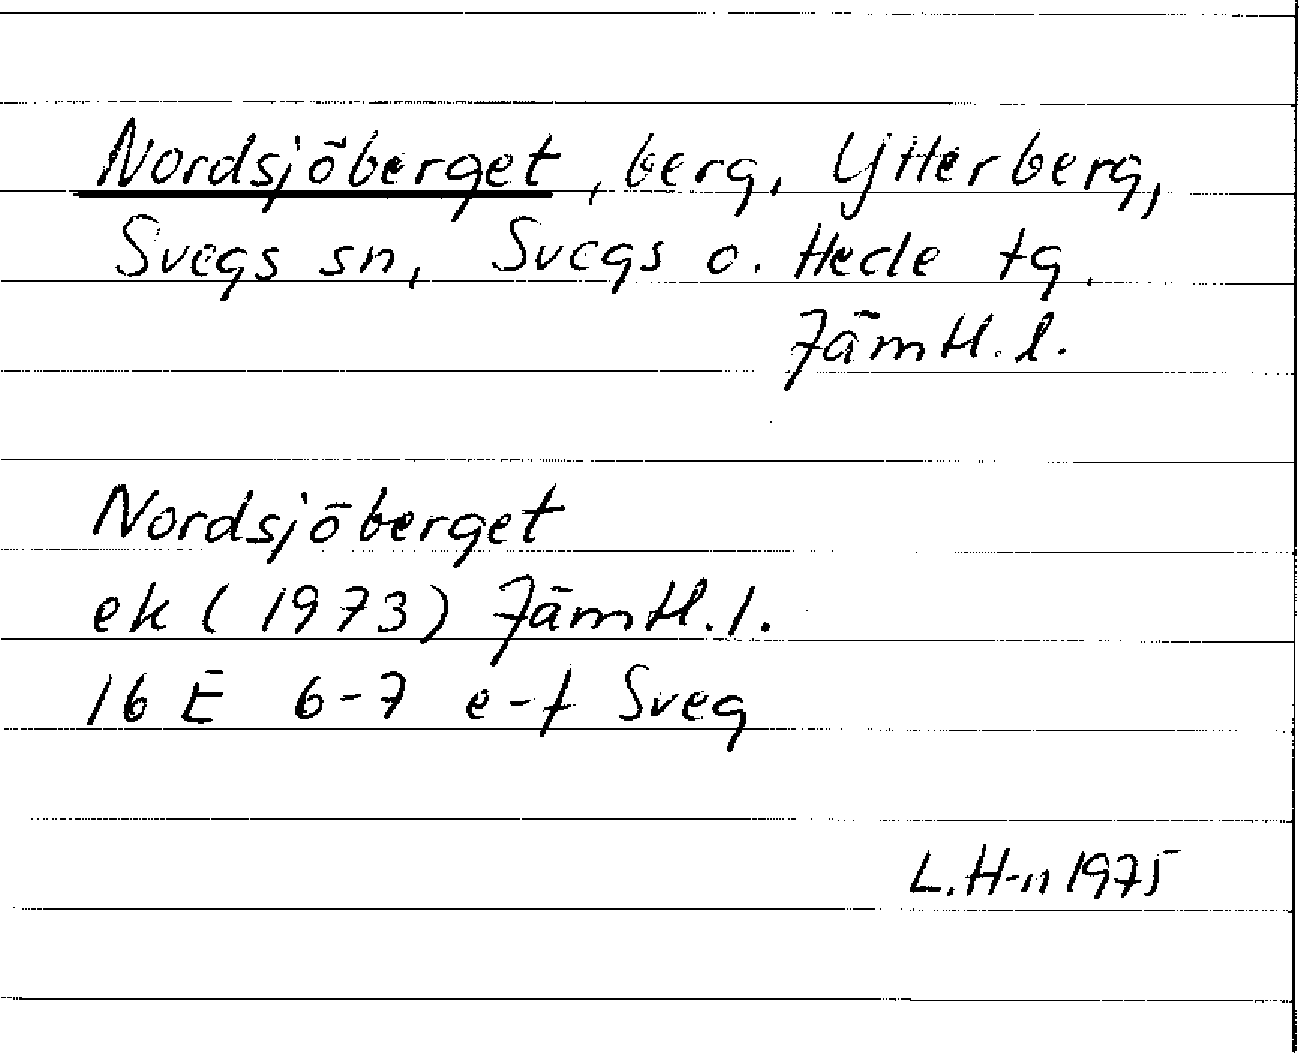 Nordsjöberget, berg, Ytterberg,
Svegs sn, Svegs o. Hede tg.
Jämtl. l.
Nordsjöberget
ek (1973) Jämtl. l.
16 E 6-7 e-f Sveg
L. H-n 1975